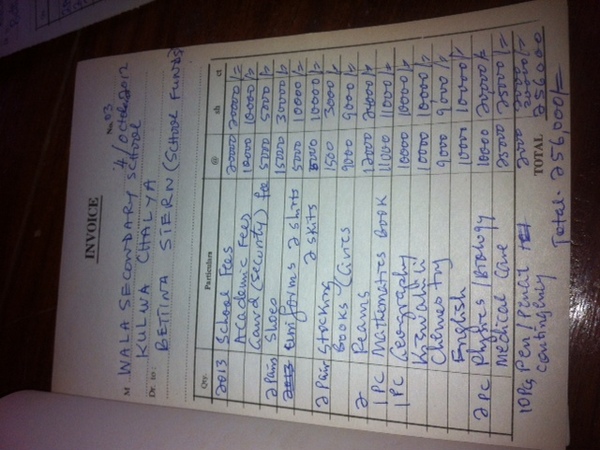 INVOICE
No. 03
4/October 2012
M WALA SECONDARY SCHOOL
KULWA CHALYA
Dr. to: BETTINA STERN (SCHOOL FUNDS)
Qty. Particulars @ sh ct
2013 School Fees 20000 20000/=
Academic Fees 10000 10000/=
Guard (security) fee 5000 5000/=
2 Pair Shoes 15000 30000/=
Uniforms 2 shirts 5000 10000/=
2 skirts 5000 10000/=
2 Pair Stocking 1500 3000/=
Books/Civics 9000 9000/=
2 Reams 12000 24000/=
1 PC Mathematics Book 11000 11000/=
1 PC Geography 10000 10000/=
Kiswahili 10000 10000/=
Chemistry 9000 9000/=
English 10000 10000/=
2 PC Physics/Biology 10000 20000/=
Medical Care 25000 25000/=
10 Pcs Pen/Pencil
contingency
TOTAL 256000
Total. 256,000/=